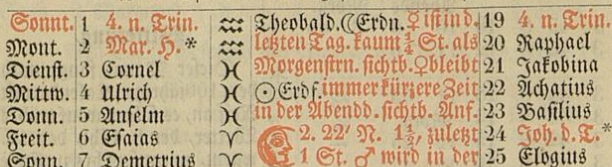 Sonnt. 1 4. n. Trin. ♒ Theobald. ☾ Erdn. ♀ ist in d. 19 4. n. Trin.
Mont. 2 Mar. H.* ♒ letzten Tag. kaum ¾ St. als 20 Raphael
Dienst. 3 Cornel ♓ Morgenstrn. sichtb. ♀ bleibt 21 Jakobina
Mittw. 4 Ulrich ♓ ☉ Erdf. immer kürzere Zeit 22 Achatius
Donn. 5 Anselm ♓ in der Abendd. sichtb. Anf. 23 Basilius
Freit. 6 Esaias ♈ 2. 22' N. 1½ zuletzt 24 Joh. d. T.*
Sonn. 7 Demetrius ♈ 1 St. ♂ wird in der 25 Elogius